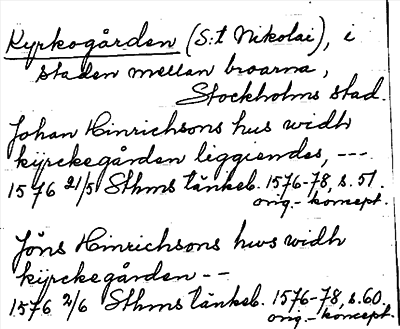 Kyrkogården (S:t Nikolai), i
staden mellan broarna,
Stockholms stad.
Johan Hinrichsons hus widh
kÿrckegården liggiendes, ---
1576 21/5 Sthms tänkeb. 1576-78, s. 51.
orig.- koncept.
Jöns Hinrichsons hws widh
kÿrckegården --
1576 2/6 Sthms tänkeb. 1576-78, s. 60.
orig.- koncept.